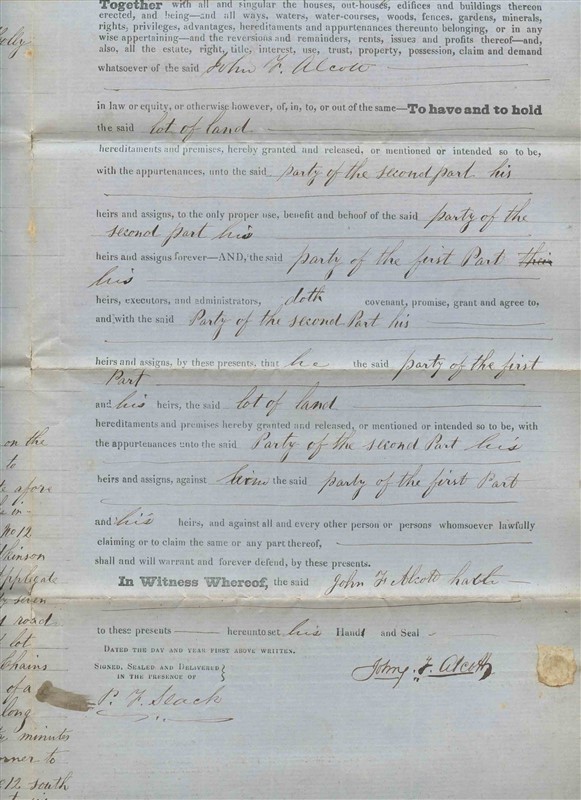 Together with all and singular the houses, out-houses, edifices and buildings thereon
erected, and being—and all ways, waters, water-courses, woods, fences, gardens, minerals,
rights, privileges, advantages, hereditaments and appurtenances thereunto belonging, or in any
wise appertaining—and the reversions and remainders, rents, issues and profits thereof—and,
also, all the estate, right, title, interest, use, trust, property, possession, claim and demand
whatsoever of the said John F. Alcott
in law or equity, or otherwise however, of, in, to, or out of the same—To have and to hold
the said lot of land
hereditaments and premises, hereby granted and released, or mentioned or intended so to be,
with the appurtenances, unto the said party of the second part his
heirs and assigns, to the only proper use, benefit and behoof of the said party of the
second part his
heirs and assigns forever—AND, the said party of the first Part their
his
heirs, executors, and administrators, doth covenant, promise, grant and agree to,
and with the said Party of the second Part his
heirs and assigns, by these presents, that he the said party of the first
Part
and his heirs, the said lot of land
hereditaments and premises hereby granted and released, or mentioned or intended so to be, with
the appurtenances unto the said Party of the second Part his
heirs and assigns, against him the said party of the first Part
and his heirs, and against all and every other person or persons whomsoever lawfully
claiming or to claim the same or any part thereof,
shall and will warrant and forever defend, by these presents.
In Witness Whereof, the said John F Alcott hath
to these presents hereunto set his Hand and Seal
DATED THE DAY AND YEAR FIRST ABOVE WRITTEN.
SIGNED, SEALED AND DELIVERED
IN THE PRESENCE OF
John F. Alcott
P. F. Slack
on the
to
afore
in
No 12
Applegate
seven
road
lot
Chains
of a
long
minutes
corner to
12 south